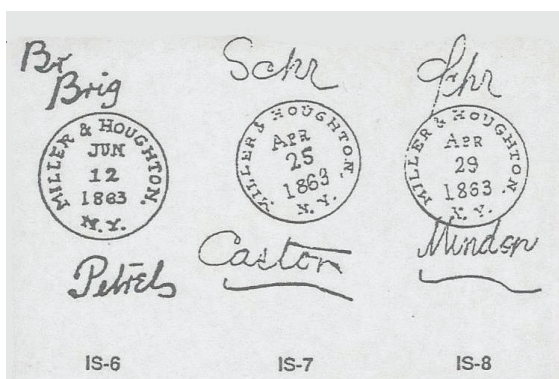 Br
Brig
MILLER & HOUGHTON.
JUN
12
1863
N.Y.
Petrels
IS-6
Schr
MILLER & HOUGHTON.
APR
25
1863
N.Y.
Castor
IS-7
Schr
MILLER & HOUGHTON.
APR
29
1863
N.Y.
Minden
IS-8